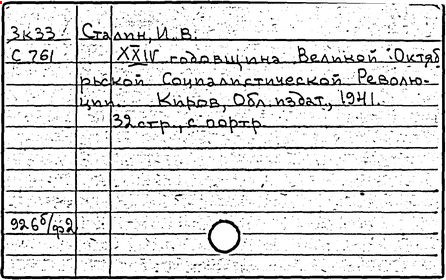 3К33 Сталин, И. В.
С 761 XXIV годовщина Великой Октяб
рьской Социалистической Револю-
ции. Киров, Обл. издат., 1941.
32 стр., с портр.
926б/ф2